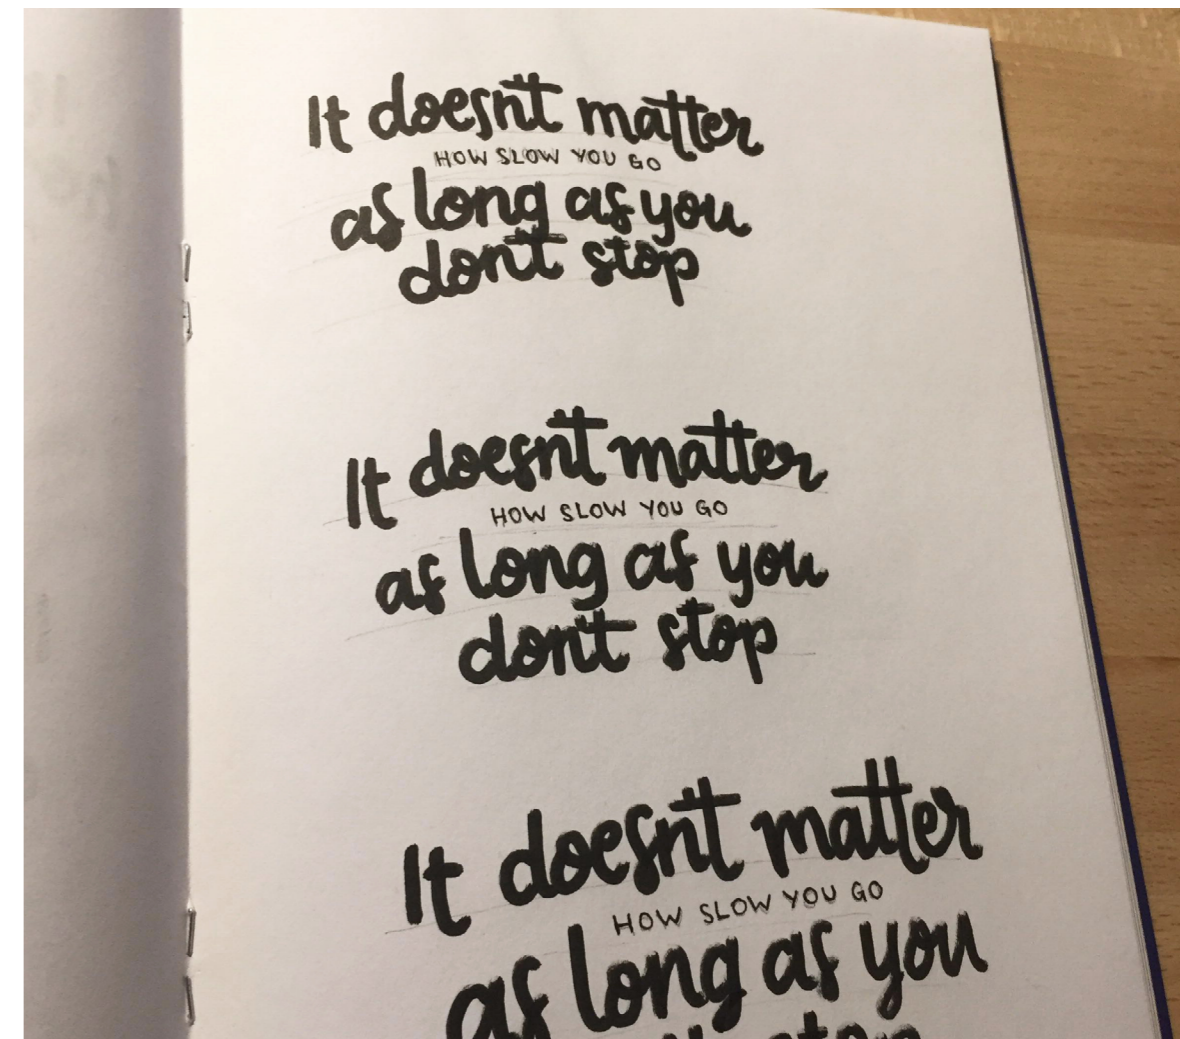 It doesn't matter
HOW SLOW YOU GO
as long as you
don't stop
It doesn't matter
HOW SLOW YOU GO
as long as you
don't stop
It doesn't matter
HOW SLOW YOU GO
as long as you
stop